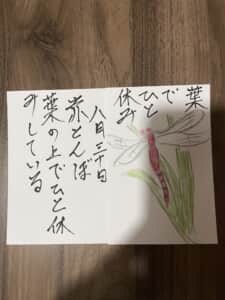 葉
で
ひと
休み
八月三十日
赤とんぼ
葉の上でひと休
みしている